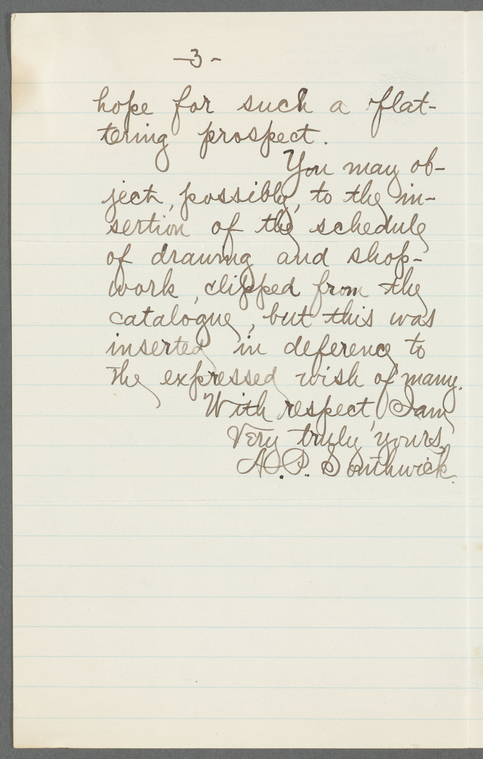 -3-
hope for such a flat-
tering prospect.
You may ob-
ject, possibly, to the in-
sertion of the schedule
of drawing and shop-
work, clipped from the
catalogue, but this was
inserted in deference to
the expressed wish of many.
With respect I am
Very truly yours,
A. P. Southwick.